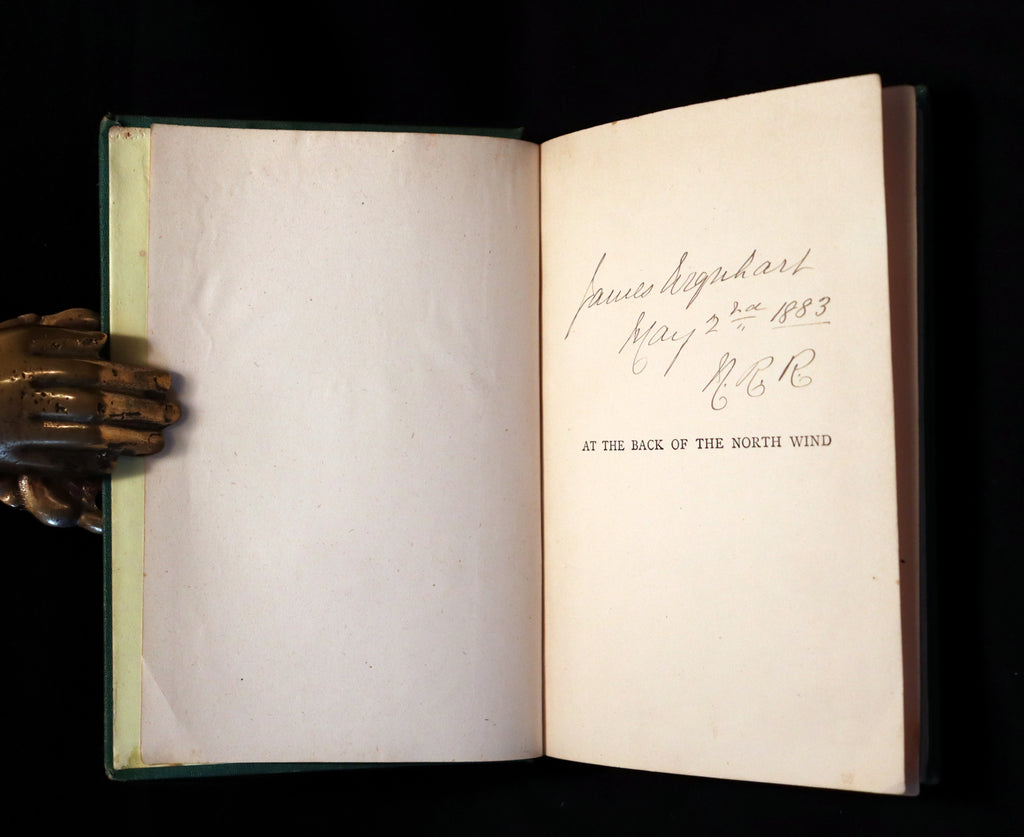 James Urquhart
May 2nd 1883
N. R. R.
AT THE BACK OF THE NORTH WIND